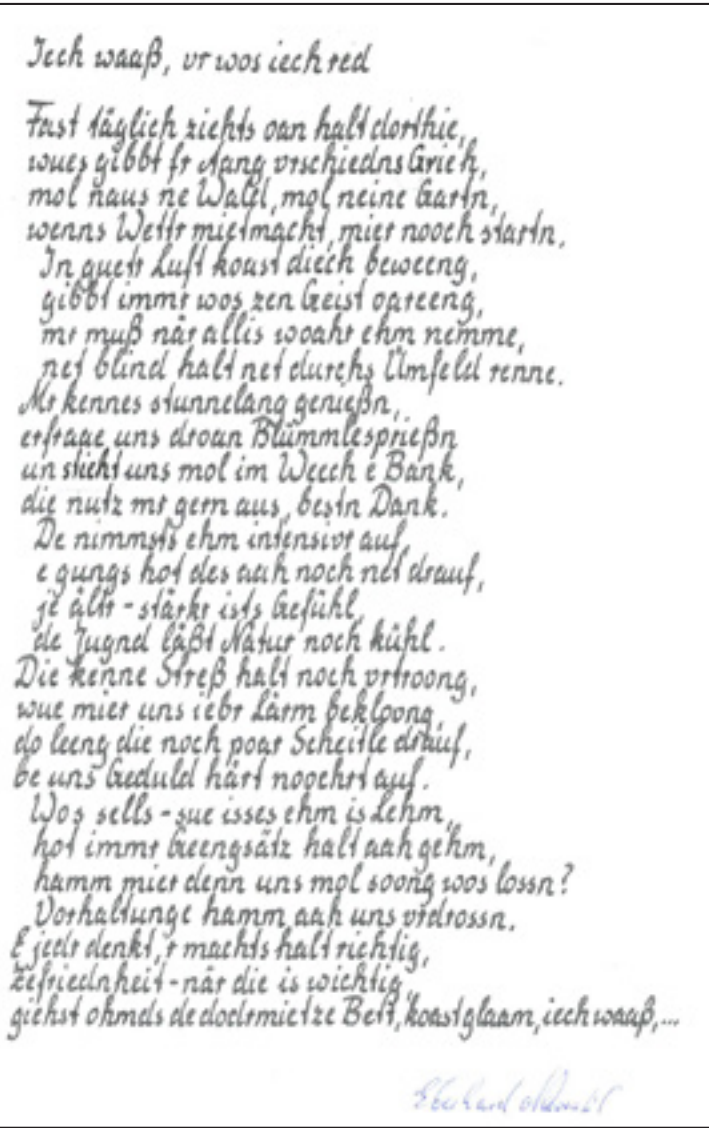 Iech waaß, vr wos iech red
Fast täglich ziehts oan halt dorthie,
wues gibbt fr Aang vrschiedns Grieh,
mol naus ne Wald, mol neine Gartn,
wenns Wettr mietmacht, mier nooch startn.
In guetr Luft koast diech beweeng,
gibbt immr wos zen Geist oareeng,
mr muß när allis woahr ehm nemme,
net blind halt net durchs Umfeld renne.
Mr kennes stunnelang genießn,
erfraae uns droan Blümmlesprießn
un stieht uns mol im Weech e Bank,
die nutz mr gern aus, bestn Dank.
De nimmsts ehm intensivr auf,
e gungs hot des aah noch net drauf,
je ältr - stärkr ists Gefühl,
de Jugnd läßt Natur noch kühl.
Die kenne Streß halt noch vrtroong,
wue mier uns iebr Lärm bekloong,
do leeng die noch poar Scheitle drauf,
be uns Geduld härt noochrt auf.
Wos sells - sue isses ehm is Lehm,
hot immr Geengsätz halt aah gehm,
hamm mier denn uns mol soong wos lossn?
Vorhaltunge hamm aah uns vrdrossn.
E jedr denkt, 'r machts halt richtig,
Zefriednheit - när die is wichtig,
giehst ohmds de dodrmiet ze Bett, koast glaam, iech waaß,...
Eberhard